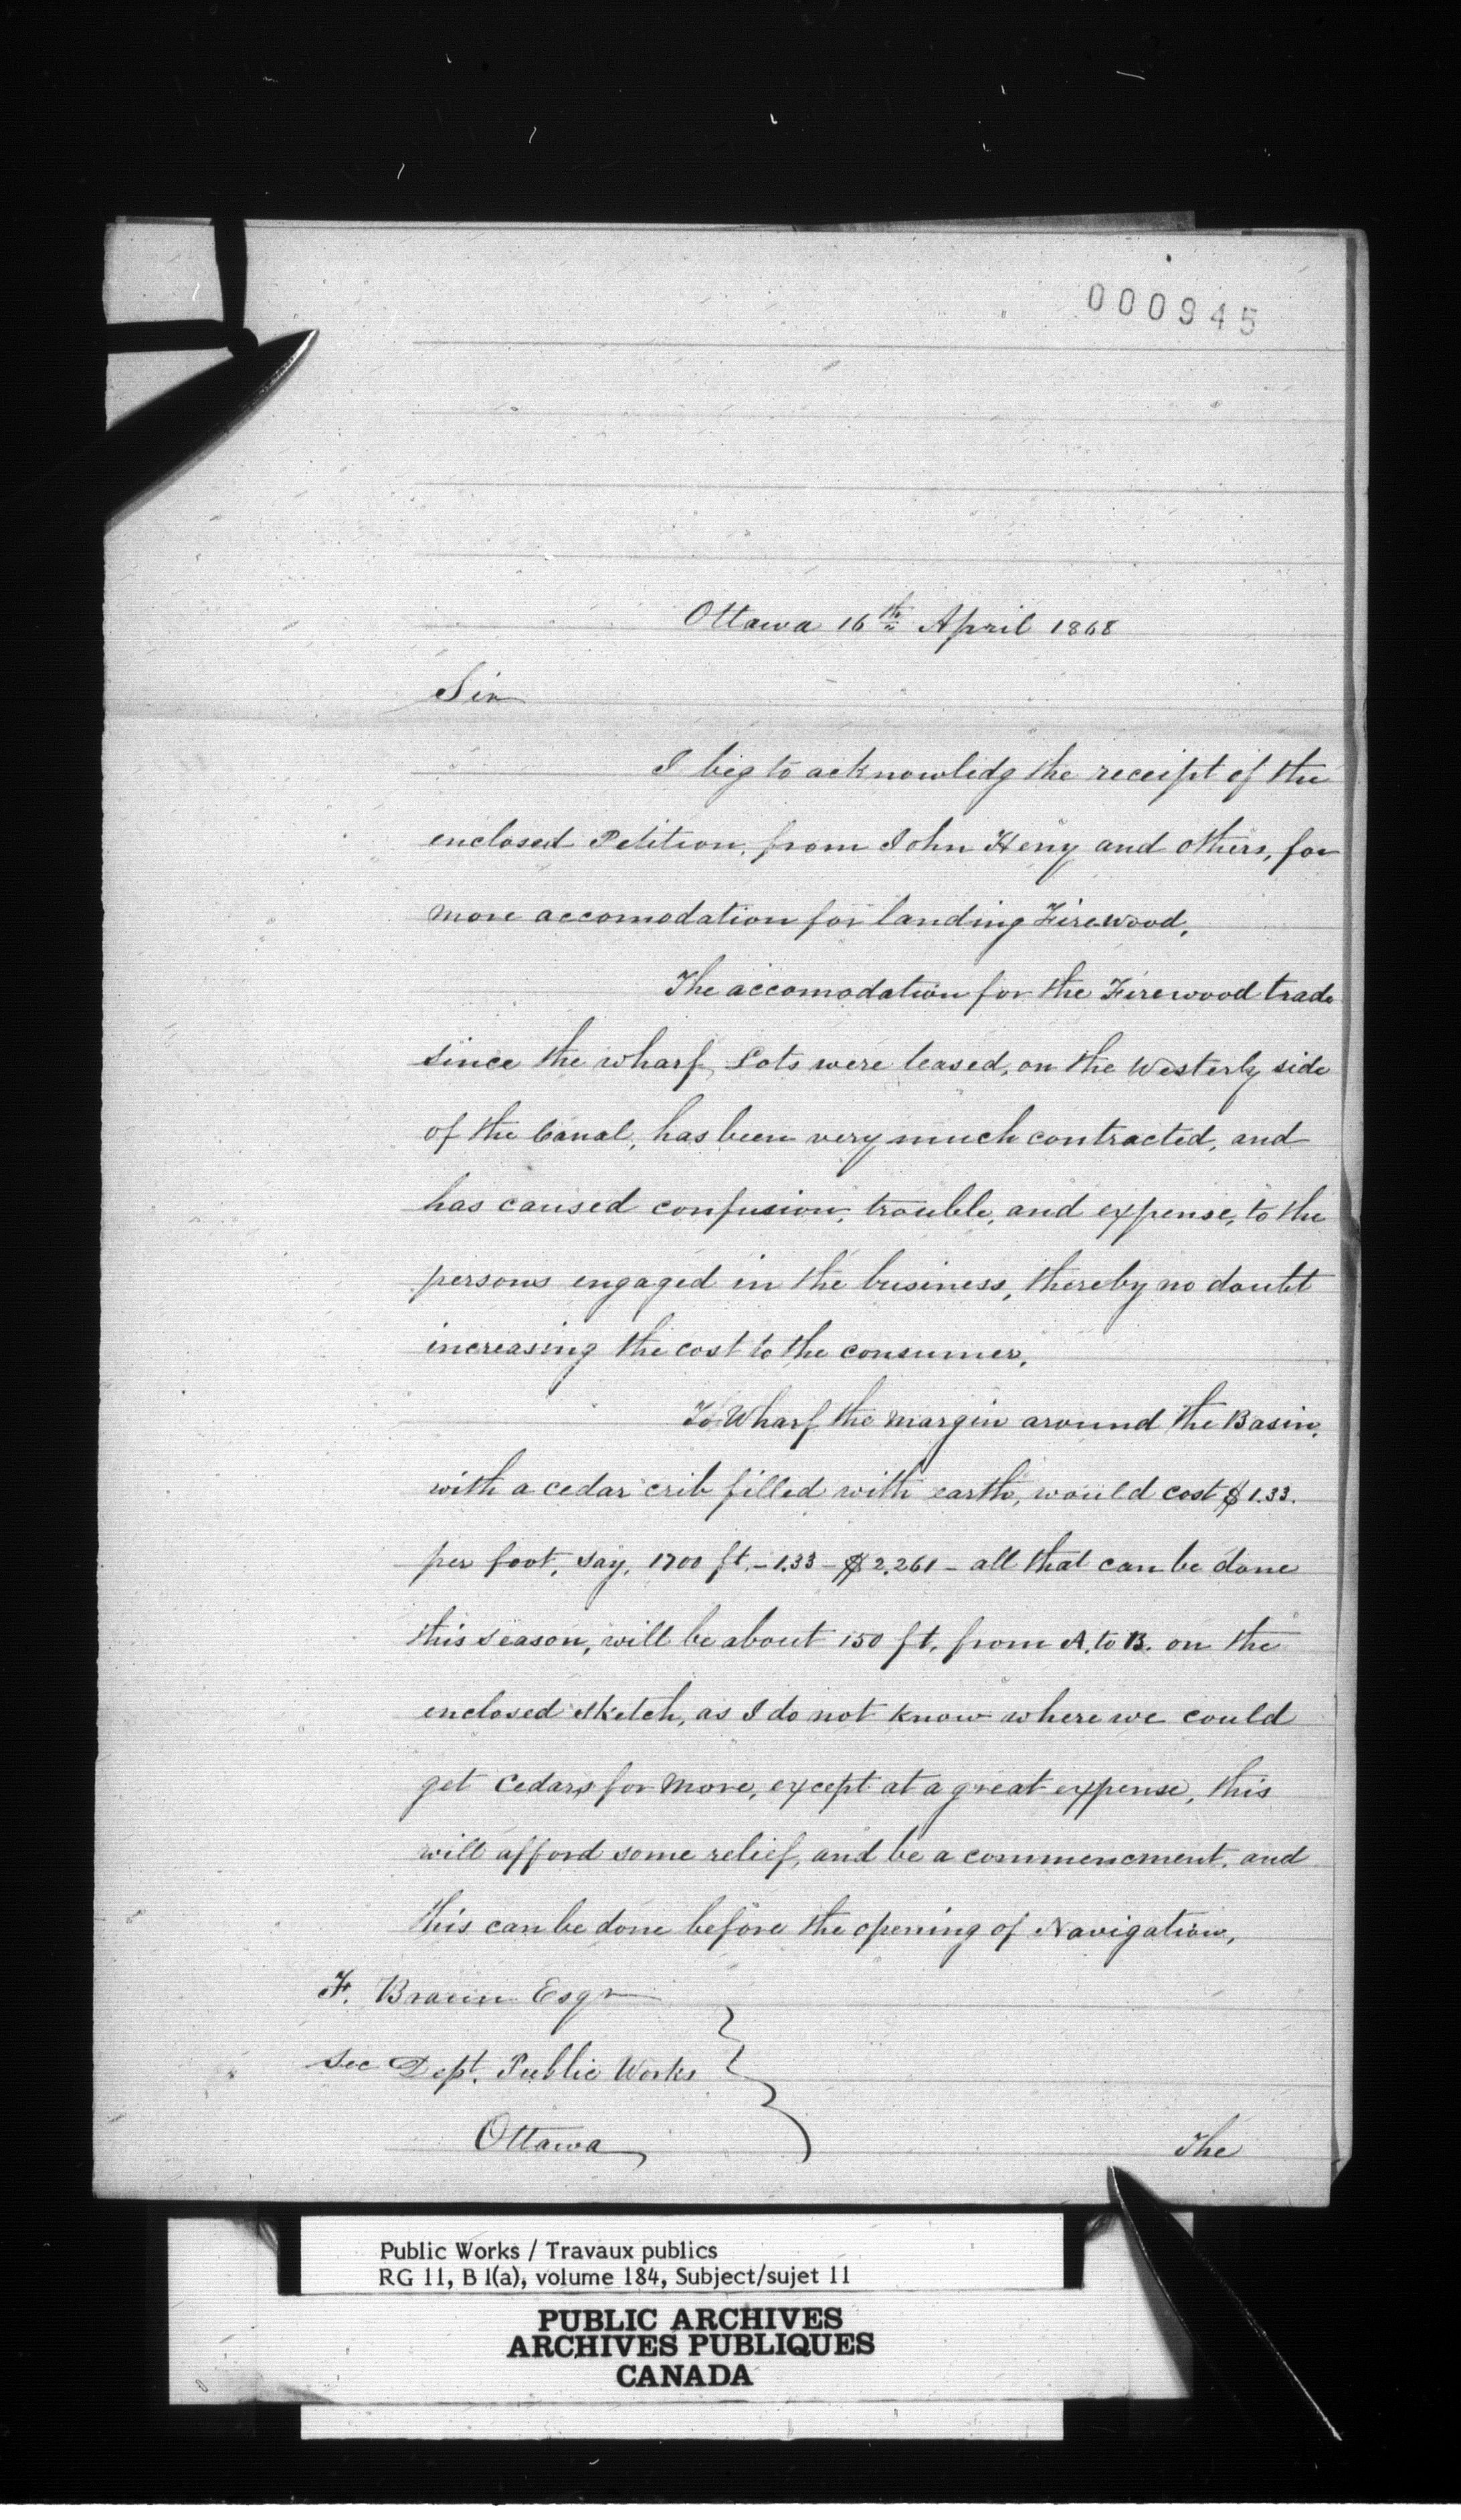 000945
Ottawa 16th April 1868
Sir
I beg to acknowledg the receipt of the
enclosed Petition, from John Heny and others, for
more accomodation for landing Firewood.
The accomodation for the Firewood trade
since the wharf Lots were leased, on the Westerly side
of the Canal, has been very much contracted, and
has caused confusion, trouble, and expense, to the
persons engaged in the business, thereby no doubt
increasing the cost to the consumer.
To Wharf the margin around the Basin,
with a cedar crib filled with earth, would cost $1.33.
per foot, say, 1700 ft. - 1.33 - $2.261 - all that can be done
this season, will be about 150 ft, from A. to B. on the
enclosed sketch, as I do not know where we could
get Cedars for more, except at a great expense, this
will afford some relief, and be a commencment, and
this can be done before the opening of Navigation,
F. Braun Esqr
Sec Dept. Public Works
Ottawa
The
Public Works / Travaux publics
RG 11, B 1(a), volume 184, Subject/sujet 11
PUBLIC ARCHIVES
ARCHIVES PUBLIQUES
CANADA